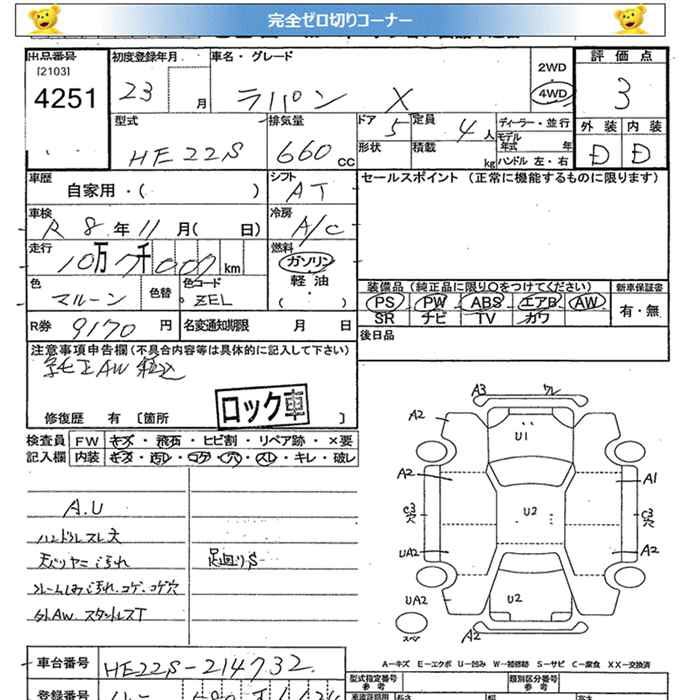 完全ゼロ切りコーナー
出品番号 初度登録年月 車名・グレード 2WD 評価点
[2103] 4251 23 月 ラパン X 4WD 3
型式 排気量 ドア 5 定員 4人 ディーラー・並行 外装 内装
HE22S 660cc 形状 積載 kg モデル年式 年 D D
ハンドル 左・右
車歴 自家用・( ) シフト AT セールスポイント (正常に機能するものに限ります)
車検 R8年11月( 日) 冷房 A/C
走行 10万7千007km 燃料 ガソリン
軽油
( )
色 マルーン 色替 色コード ZEL
装備品(純正品に限り○をつけてください) 新車保証書
PS PW ABS エアB AW 有・無
SR ナビ TV カワ
R券 9170円 名変通知期限 月 日 後日品
注意事項申告欄(不具合内容等は具体的に記入して下さい)
純正AW積込
ロック車
修復歴 有 [箇所 ]
検査員 FW キズ・飛石・ヒビ割・リペア跡・×要
記入欄 内装 キズ・汚レ・コゲ・穴・スレ・キレ・破レ
A.U
ハンドルスレ大
天バリヤニ汚れ 足廻りS
シートしみ汚れ、コゲ、コゲ穴
外AW. スタッドレスT
A3 ワレ
A2 U1
A2 A1
C3 穴 U2 C3 穴
UA2 A2
UA2 U2
スペア A2
A-キズ E-エクボ U-凹み W-補修跡 S-サビ C-腐食 XX-交換済
車台番号 HE22S-214732
型式指定番号 参考 類別区分番号 参考
登録番号